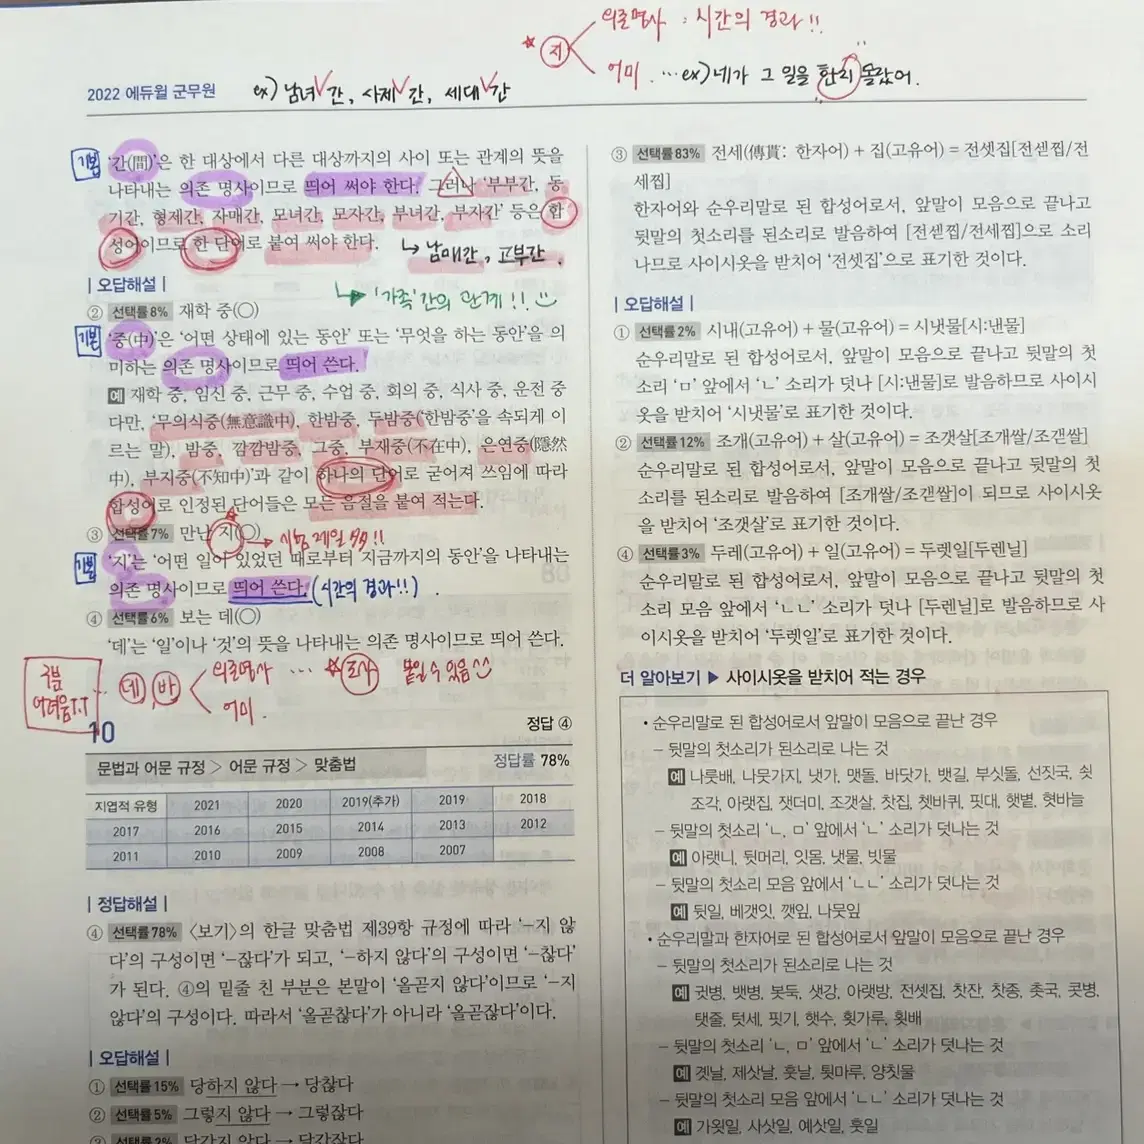 의존명사 : 시간의 경과!!
★ 지
어미 … ex) 네가 그 일을 한지 몰랐어.
2022 에듀윌 군무원
ex) 남녀∨간, 사제∨간, 세대∨간
기본
'간(間)'은 한 대상에서 다른 대상까지의 사이 또는 관계의 뜻을
나타내는 의존 명사이므로 띄어 써야 한다. 그러나 '부부간, 동
기간, 형제간, 자매간, 모녀간, 모자간, 부녀간, 부자간' 등은 합
성어이므로 한 단어로 붙여 써야 한다.
↳ 남매간, 고부간.
| 오답해설 |
↳ '가족'간의 관계!!
② 선택률 8% 재학 중(○)
기본
'중(中)'은 '어떤 상태에 있는 동안' 또는 '무엇을 하는 동안'을 의
미하는 의존 명사이므로 띄어 쓴다.
예 재학 중, 임신 중, 근무 중, 수업 중, 회의 중, 식사 중, 운전 중
다만, '무의식중(無意識中), 한밤중, 두밤중('한밤중'을 속되게 이
르는 말), 밤중, 깜깜밤중, 그중, 부재중(不在中), 은연중(隱然
中), 부지중(不知中)'과 같이 하나의 단어로 굳어져 쓰임에 따라
합성어로 인정된 단어들은 모든 음절을 붙여 적는다.
③ 선택률 7% 만난 지(○)
→ 시험 제일 多!!
기본
'지'는 '어떤 일이 있었던 때로부터 지금까지의 동안'을 나타내는
의존 명사이므로 띄어 쓴다. (시간의 경과!!)
④ 선택률 6% 보는 데(○)
'데'는 '일'이나 '것'의 뜻을 나타내는 의존 명사이므로 띄어 쓴다.
구분
어려움T.T
… 데, 바
의존명사 … ★조사 붙일 수 있음
어미.
10
정답 ④
문법과 어문 규정 > 어문 규정 > 맞춤법 정답률 78%
지엽적 유형 2021 2020 2019(추가) 2019 2018
2017 2016 2015 2014 2013 2012
2011 2010 2009 2008 2007
| 정답해설 |
④ 선택률 78% <보기>의 한글 맞춤법 제39항 규정에 따라 '-지 않
다'의 구성이면 '-잖다'가 되고, '-하지 않다'의 구성이면 '-찮다'
가 된다. ④의 밑줄 친 부분은 본말이 '올곧지 않다'이므로 '-지
않다'의 구성이다. 따라서 '올곧찮다'가 아니라 '올곧잖다'이다.
| 오답해설 |
① 선택률 15% 당하지 않다 → 당찮다
② 선택률 5% 그렇지 않다 → 그렇잖다
③ 선택률 2% 달갑지 않다 → 달갑잖다
③ 선택률 83% 전세(傳貰: 한자어) + 집(고유어) = 전셋집[전섿찝/전
세찝]
한자어와 순우리말로 된 합성어로서, 앞말이 모음으로 끝나고
뒷말의 첫소리를 된소리로 발음하여 [전섿찝/전세찝]으로 소리
나므로 사이시옷을 받치어 '전셋집'으로 표기한 것이다.
| 오답해설 |
① 선택률 2% 시내(고유어) + 물(고유어) = 시냇물[시:낸물]
순우리말로 된 합성어로서, 앞말이 모음으로 끝나고 뒷말의 첫
소리 'ㅁ' 앞에서 'ㄴ' 소리가 덧나 [시:낸물]로 발음하므로 사이시
옷을 받치어 '시냇물'로 표기한 것이다.
② 선택률 12% 조개(고유어) + 살(고유어) = 조갯살[조개쌀/조갣쌀]
순우리말로 된 합성어로서, 앞말이 모음으로 끝나고 뒷말의 첫
소리를 된소리로 발음하여 [조개쌀/조갣쌀]이 되므로 사이시옷
을 받치어 '조갯살'로 표기한 것이다.
④ 선택률 3% 두레(고유어) + 일(고유어) = 두렛일[두렌닐]
순우리말로 된 합성어로서, 앞말이 모음으로 끝나고 뒷말의 첫
소리 모음 앞에서 'ㄴㄴ' 소리가 덧나 [두렌닐]로 발음하므로 사
이시옷을 받치어 '두렛일'로 표기한 것이다.
더 알아보기 ▶ 사이시옷을 받치어 적는 경우
• 순우리말로 된 합성어로서 앞말이 모음으로 끝난 경우
- 뒷말의 첫소리가 된소리로 나는 것
예 나룻배, 나뭇가지, 냇가, 맷돌, 바닷가, 뱃길, 부싯돌, 선짓국, 쇳
조각, 아랫집, 잿더미, 조갯살, 찻집, 쳇바퀴, 핏대, 햇볕, 혓바늘
- 뒷말의 첫소리 'ㄴ, ㅁ' 앞에서 'ㄴ' 소리가 덧나는 것
예 아랫니, 뒷머리, 잇몸, 냇물, 빗물
- 뒷말의 첫소리 모음 앞에서 'ㄴㄴ' 소리가 덧나는 것
예 뒷일, 베갯잇, 깻잎, 나뭇잎
• 순우리말과 한자어로 된 합성어로서 앞말이 모음으로 끝난 경우
- 뒷말의 첫소리가 된소리로 나는 것
예 귓병, 뱃병, 봇둑, 샛강, 아랫방, 전셋집, 찻잔, 찻종, 촛국, 콧병,
탯줄, 텃세, 핏기, 햇수, 횟가루, 횟배
- 뒷말의 첫소리 'ㄴ, ㅁ' 앞에서 'ㄴ' 소리가 덧나는 것
예 곗날, 제삿날, 훗날, 툇마루, 양칫물
- 뒷말의 첫소리 모음 앞에서 'ㄴㄴ' 소리가 덧나는 것
예 가욋일, 사삿일, 예삿일, 훗일